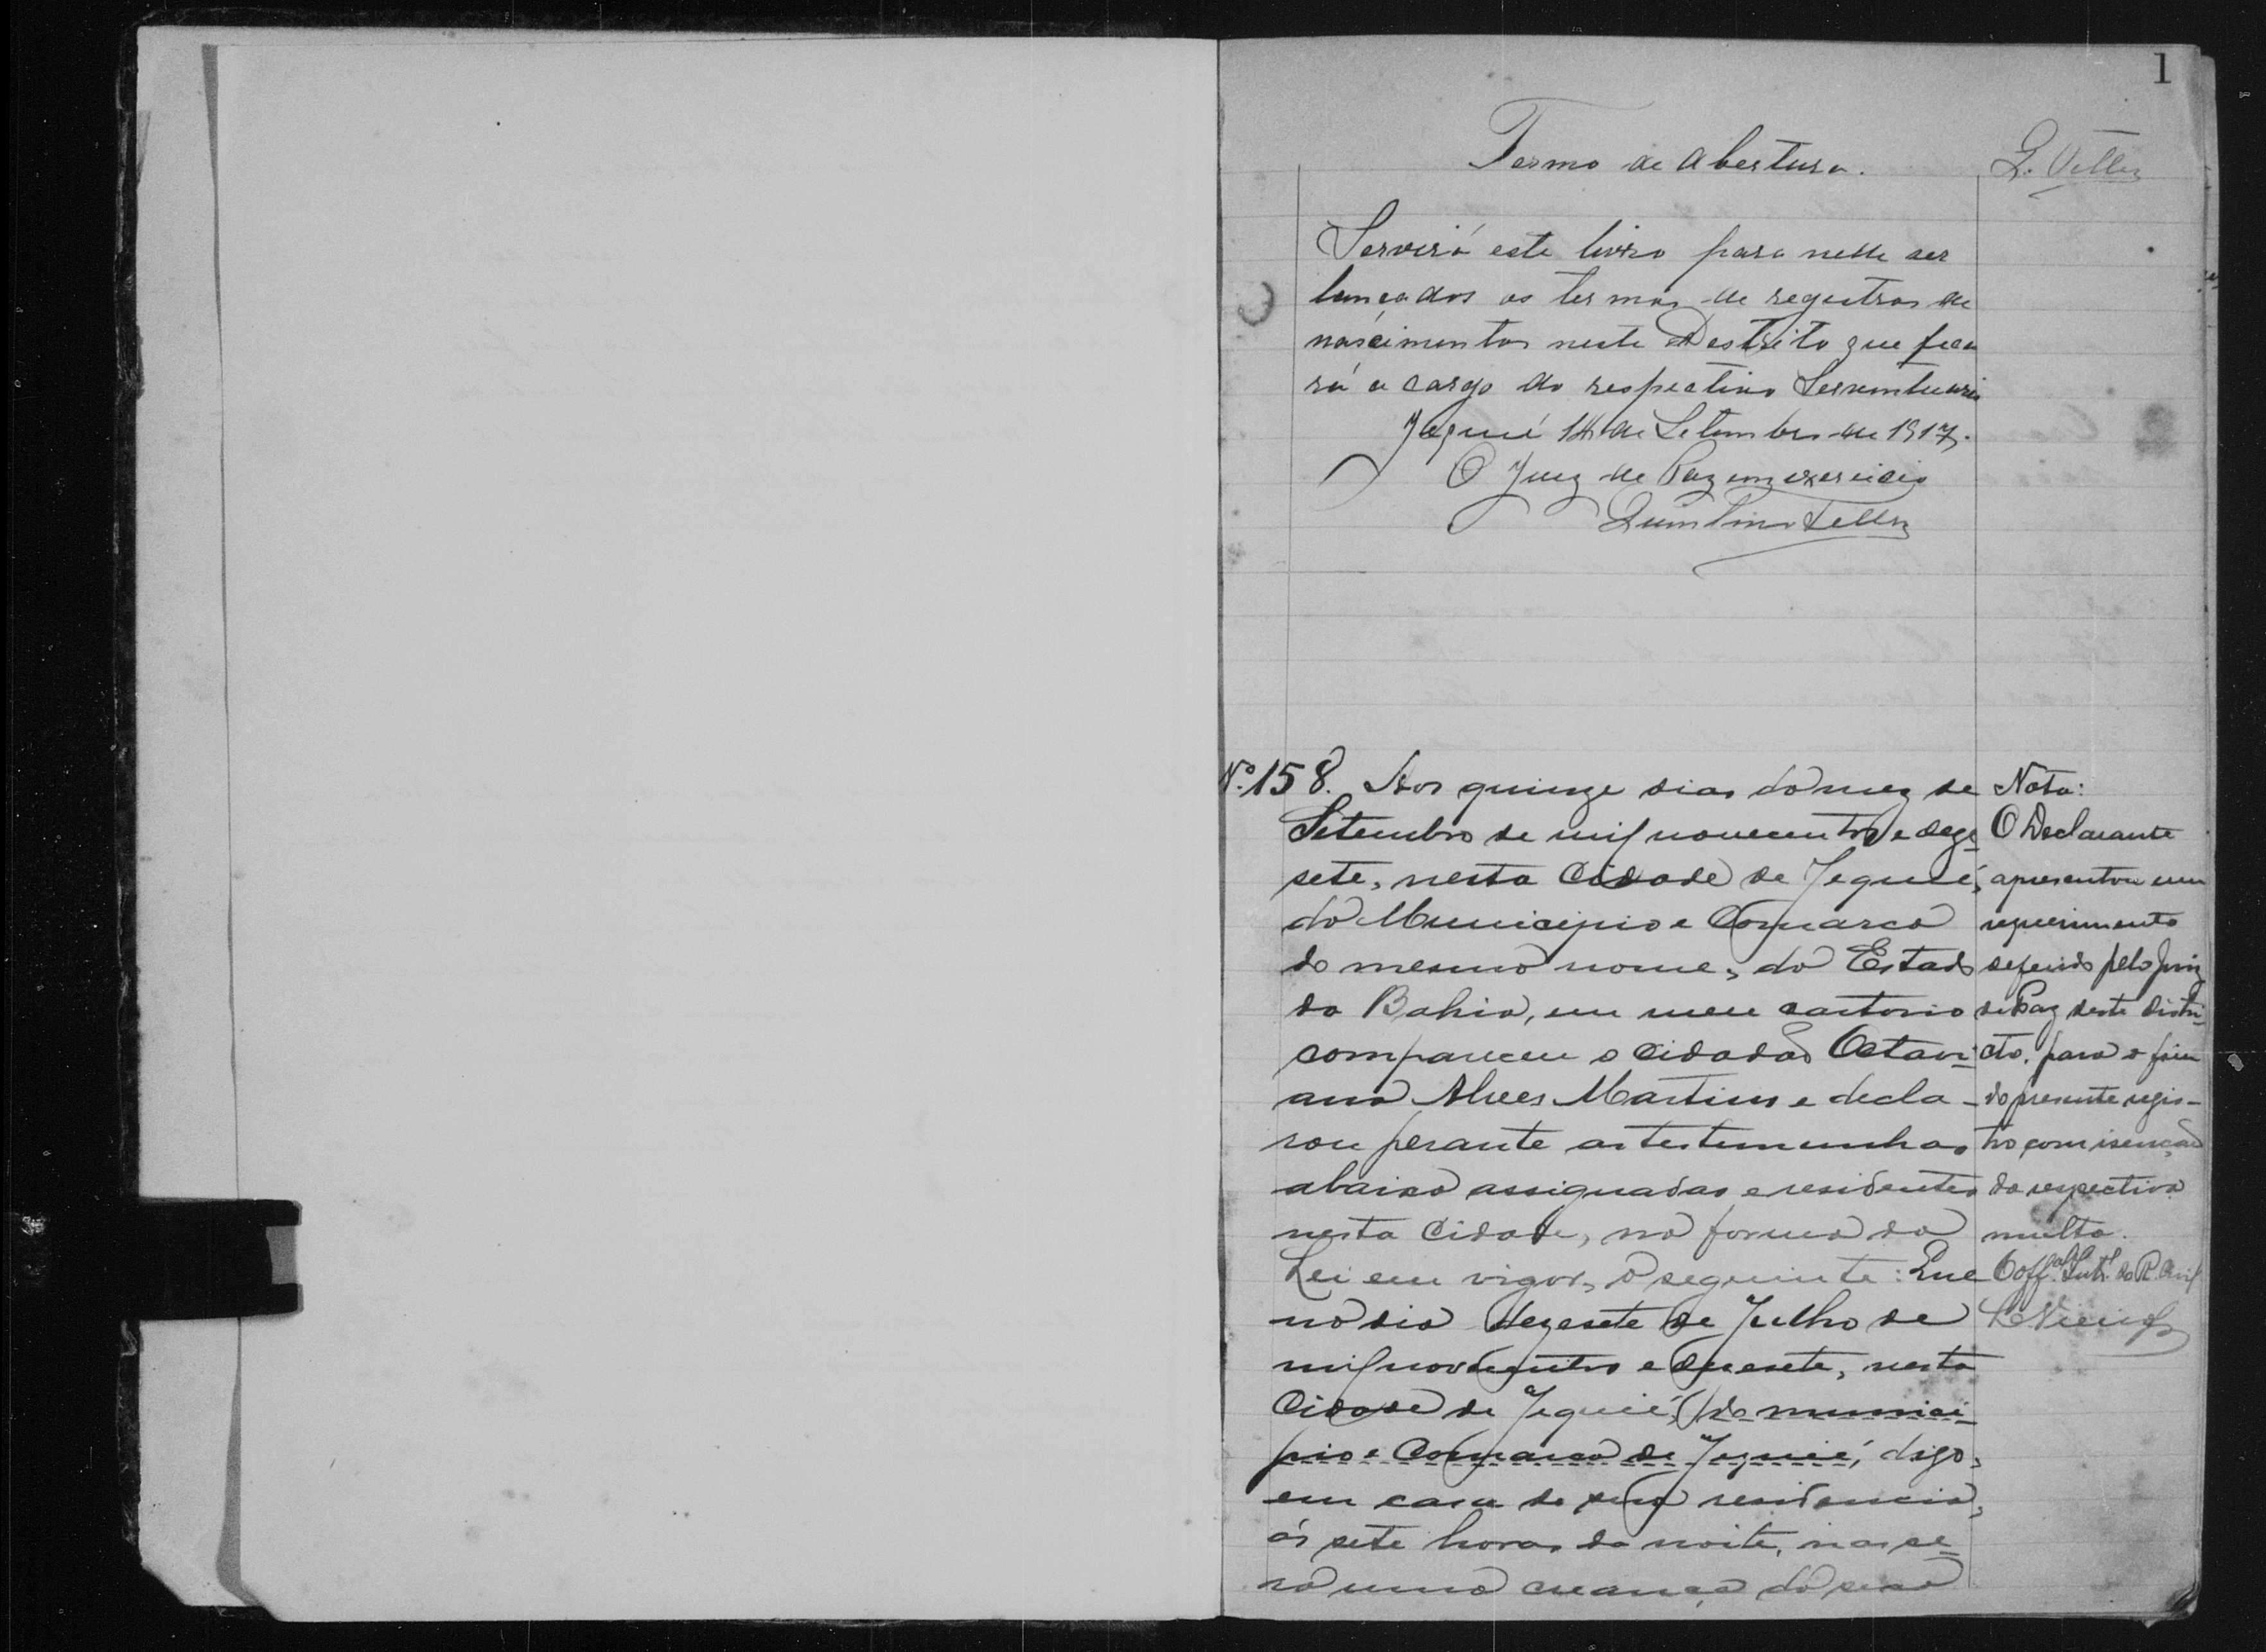 1
Termo de Abertura.
Q. Telles
Servirá este livro para nelle ser
lançados os termos de registros de
nascimentos neste Destrito que fica
rá a cargo do respectivo Serventuario
Jequié 14 de Setembro de 1917.
O Juiz de Paz em exercicio
Quintino Telles
Nº 158. Aos quinze dias do mez de
Setembro de mil novecentos e deze
sete, nesta Cidade de Jequié,
do Municipio e Comarca
do mesmo nome, do Estado
da Bahia, em meu cartorio
compareceu o cidadão Octavi-
ano Alves Martins e decla-
rou perante as testemunhas
abaixo assignadas e residentes
nesta Cidade, na forma da
Lei em vigor, o seguinte: Que
no dia dezesete de Julho de
mil novecentos e dezesete, nesta
Cidade de Jequié, (do munici-
pio e Comarca de Jequié, digo,
em casa de sua residencia,
ás sete horas da noite, nasce-
ra uma creança do sexo
Nota:
O Declarante
apresentou um
requerimento
deferido pelo Juiz
de Paz deste Distri-
cto, para o fim
do presente regis-
tro com isenção
da respectiva
multa.
O offal. Subt. do R. Civil